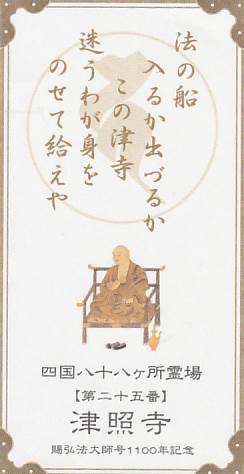 法の船
入るか出づるか
この津寺
迷うわが身を
のせて給えや
四国八十八ヶ所霊場
【第二十五番】
津照寺
賜弘法大師号1100年記念